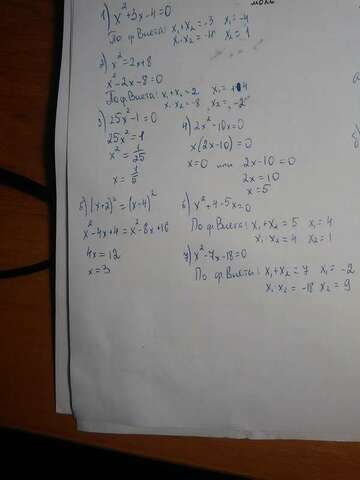 1) x²+3x-4=0
По ф Виета: x₁+x₂=-3 x₁=-4
x₁·x₂=-4 x₂=1
2) x²=2x+8
x²-2x-8=0
По ф Виета: x₁+x₂=2 x₁=4
x₁·x₂=-8 x₂=-2
3) 25x²-1=0
25x²=1
x²=1/25
x=1/5
4) 2x²-10x=0
x(2x-10)=0
x=0 или 2x-10=0
2x=10
x=5
5) (x+2)²=(x-4)²
x²-4x+4=x²-8x+16
4x=12
x=3
6) x²+4-5x=0
По ф Виета: x₁+x₂=5 x₁=4
x₁·x₂=4 x₂=1
7) x²-7x-18=0
По ф Виета: x₁+x₂=7 x₁=-2
x₁·x₂=-18 x₂=9